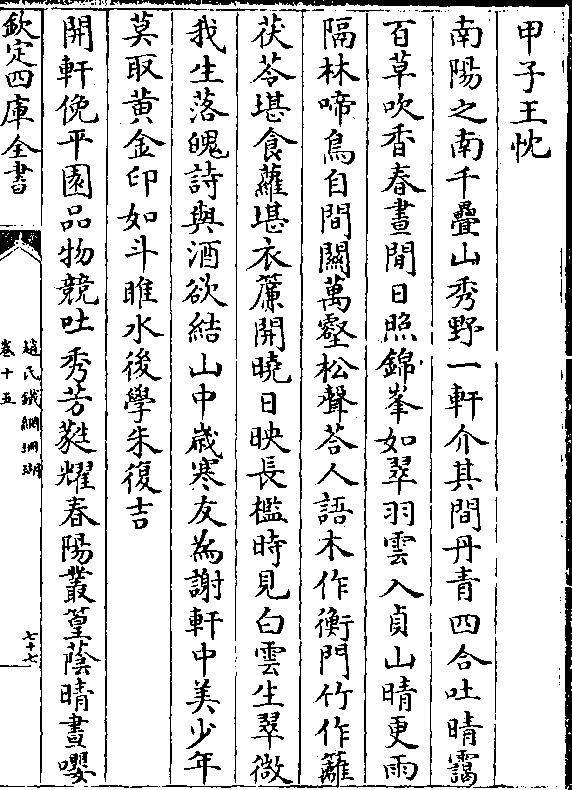 甲子王忱
南陽之南千疊山秀野一軒介其間丹青四合吐晴靄
百草吹香春晝閒日照錦峯如翠羽雲入貞山晴更雨
隔林啼鳥自間關萬壑松聲答人語木作衡門竹作籬
茯苓堪食蘿堪衣簾開曉日映長檻時見白雲生翠微
我生落魄詩與酒欲結山中歲寒友為謝軒中美少年
莫取黃金印如斗睢水後學朱復吉
開軒俛平園品物競吐秀芳蕤耀春陽叢篁蔭晴晝嚶
欽定四庫全書
趙氏鐵網珊瑚
卷十五
七十七